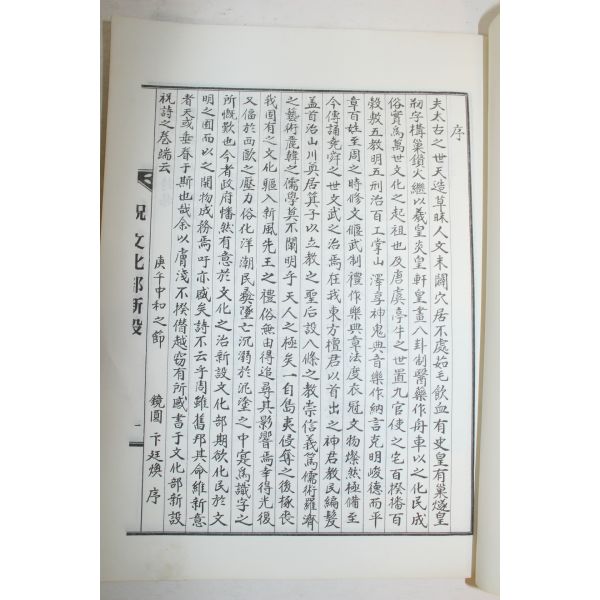 序
夫太古之世天造草昧人文未闢穴居不處茹毛飲血有史皇有巢燧皇
剏字構巢鑽火繼以羲皇炎皇軒皇畫八卦制醫藥作舟車以之化民成
俗實爲萬世文化之起祖也及唐虞亭午之世置九官使之宅百揆播百
穀敷五教明五刑治百工掌山澤享神鬼典音樂作納言克明峻德而平
章百姓至周之時修文偃武制禮作樂典章法度衣冠文物燦然極備至
今傳誦堯舜之世文武之治焉在我東方檀君以首出之神君教民編髮
盖首治山川奠居箕子以立教之聖后設八條之教崇信義篤儒術羅濟
之藝術麗韓之儒學莫不闡明乎天人之極矣一自島夷侵奪之後掾喪
我固有之文化驅入新風先王之禮俗無由得追尋其影響焉幸得光復
又偪於西歐之壓力俗化洋潮民彛墜亡沉溺於泥塗之中寔爲識字之
所慨歎也今者政府幡然有意於文化之治新設文化部期欲化民於文
明之囿而以之開物成務焉吁亦盛矣詩不云乎周雖舊邦其命維新意
者天或垂眷于斯也哉余以膚淺不揆僭越窃有所感書于文化部新設
祝詩之卷端云
庚午中和之節　鏡圓 卞廷煥 序
祝文化部新設
一